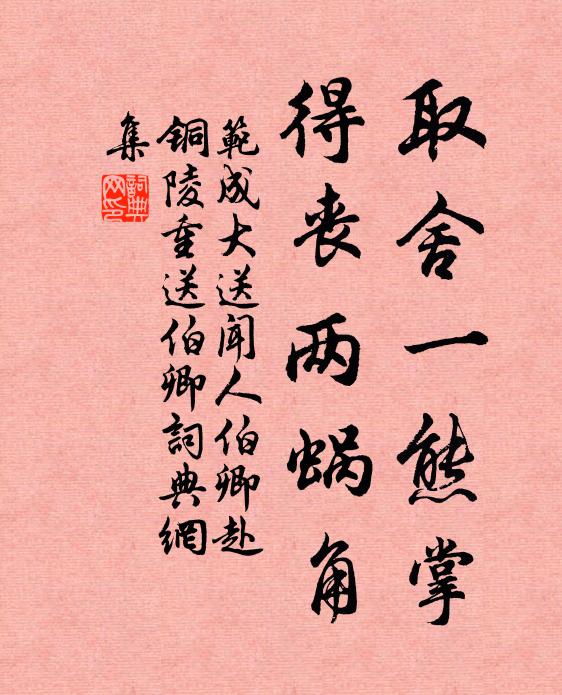 取舍一熊掌
得丧两蜗角
範成大送闻人伯卿赴
铜陵重送伯卿詞典網
集
詞典
网印